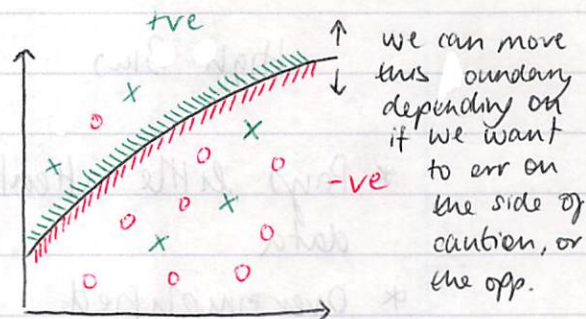 +ve
we can move
this oundary
depending on
if we want
to err on
the side of
caution, or
the opp.
-ve
data